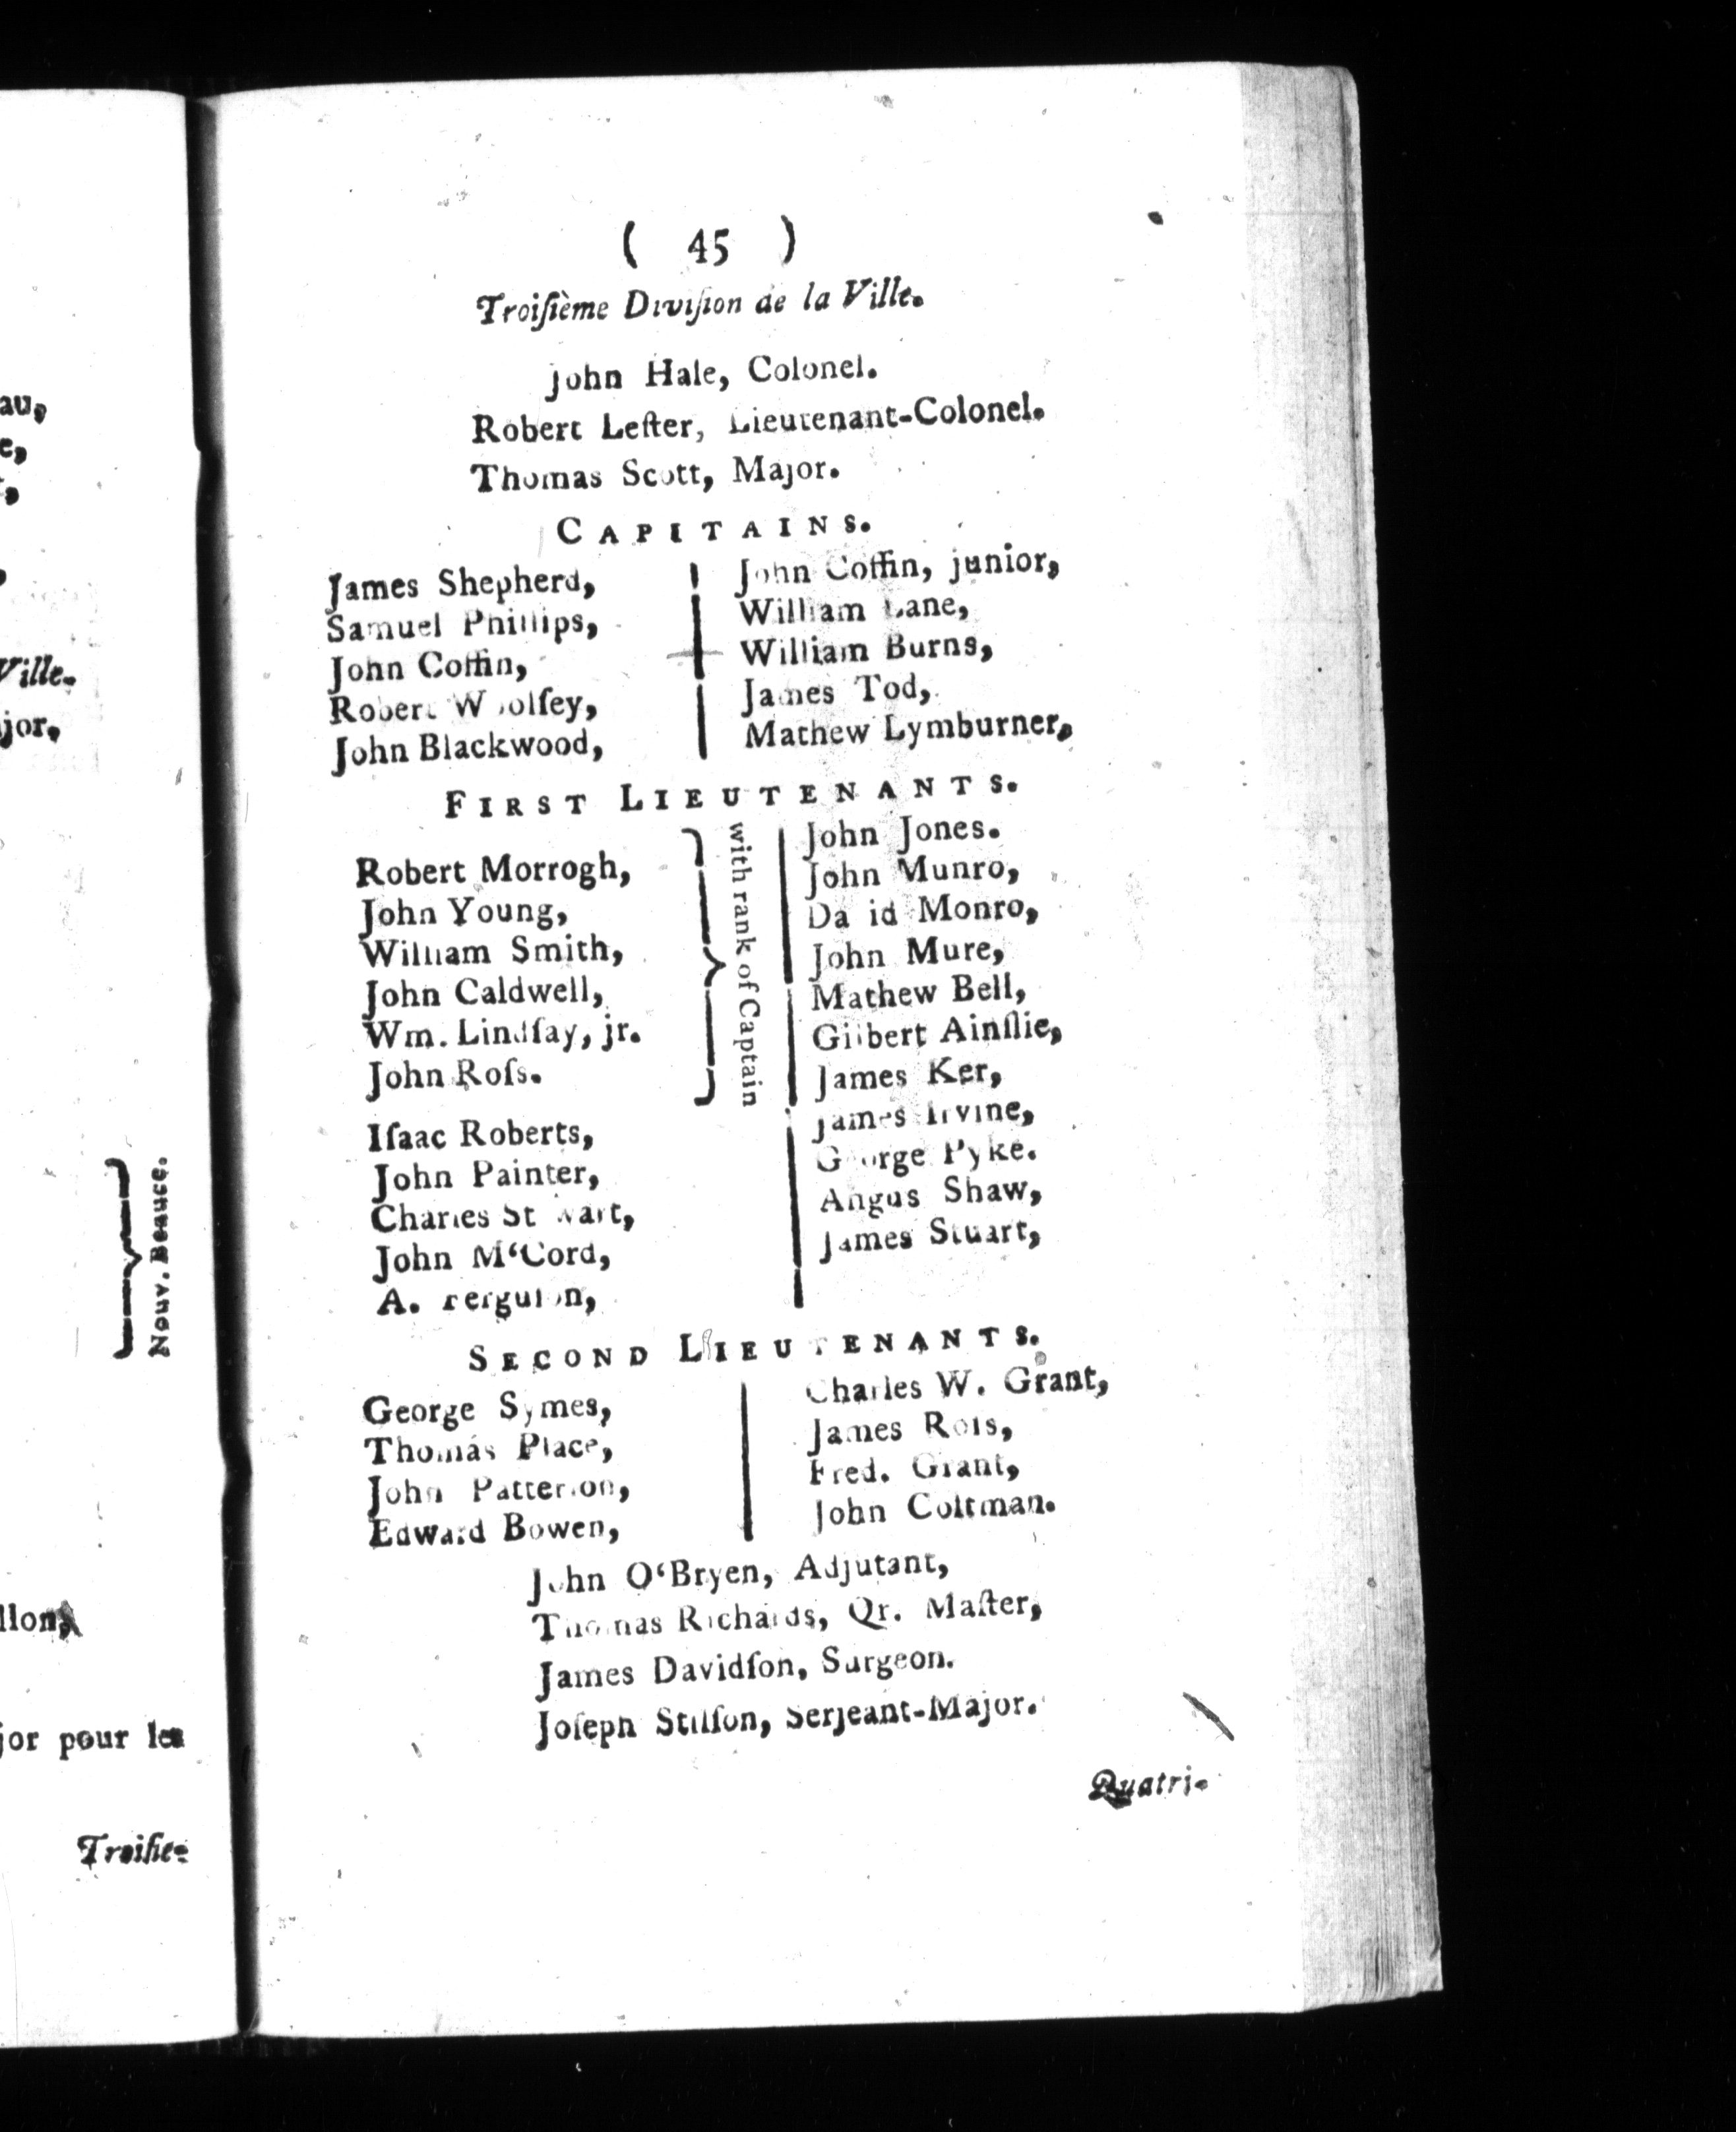 au,
e,
Ville.
jor,
Nouv. Beauce.
llon,
jor pour les
Troiſiè-
( 45 )
Troiſième Diviſion de la Ville.
John Hale, Colonel.
Robert Leſter, Lieutenant-Colonel.
Thomas Scott, Major.
CAPITAINS.
James Shepherd,
Samuel Phillips,
John Coffin,
Robert Woolſey,
John Blackwood,
John Coffin, junior,
William Lane,
William Burns,
James Tod,
Mathew Lymburner,
FIRST LIEUTENANTS.
Robert Morrogh,
John Young,
William Smith,
John Caldwell,
Wm. Lindſay, jr.
John Roſs.
with rank of Captain
Iſaac Roberts,
John Painter,
Charles Stewart,
John M‘Cord,
A. Ferguſon,
John Jones.
John Munro,
David Monro,
John Mure,
Mathew Bell,
Gilbert Ainſlie,
James Ker,
James Irvine,
George Pyke.
Angus Shaw,
James Stuart,
SECOND LIEUTENANTS.
George Symes,
Thomas Place,
John Patterſon,
Edward Bowen,
Charles W. Grant,
James Roſs,
Fred. Grant,
John Coltman.
John O‘Bryen, Adjutant,
Thomas Richards, Qr. Maſter,
James Davidſon, Surgeon.
Joſeph Stilſon, Serjeant-Major.
Quatri-